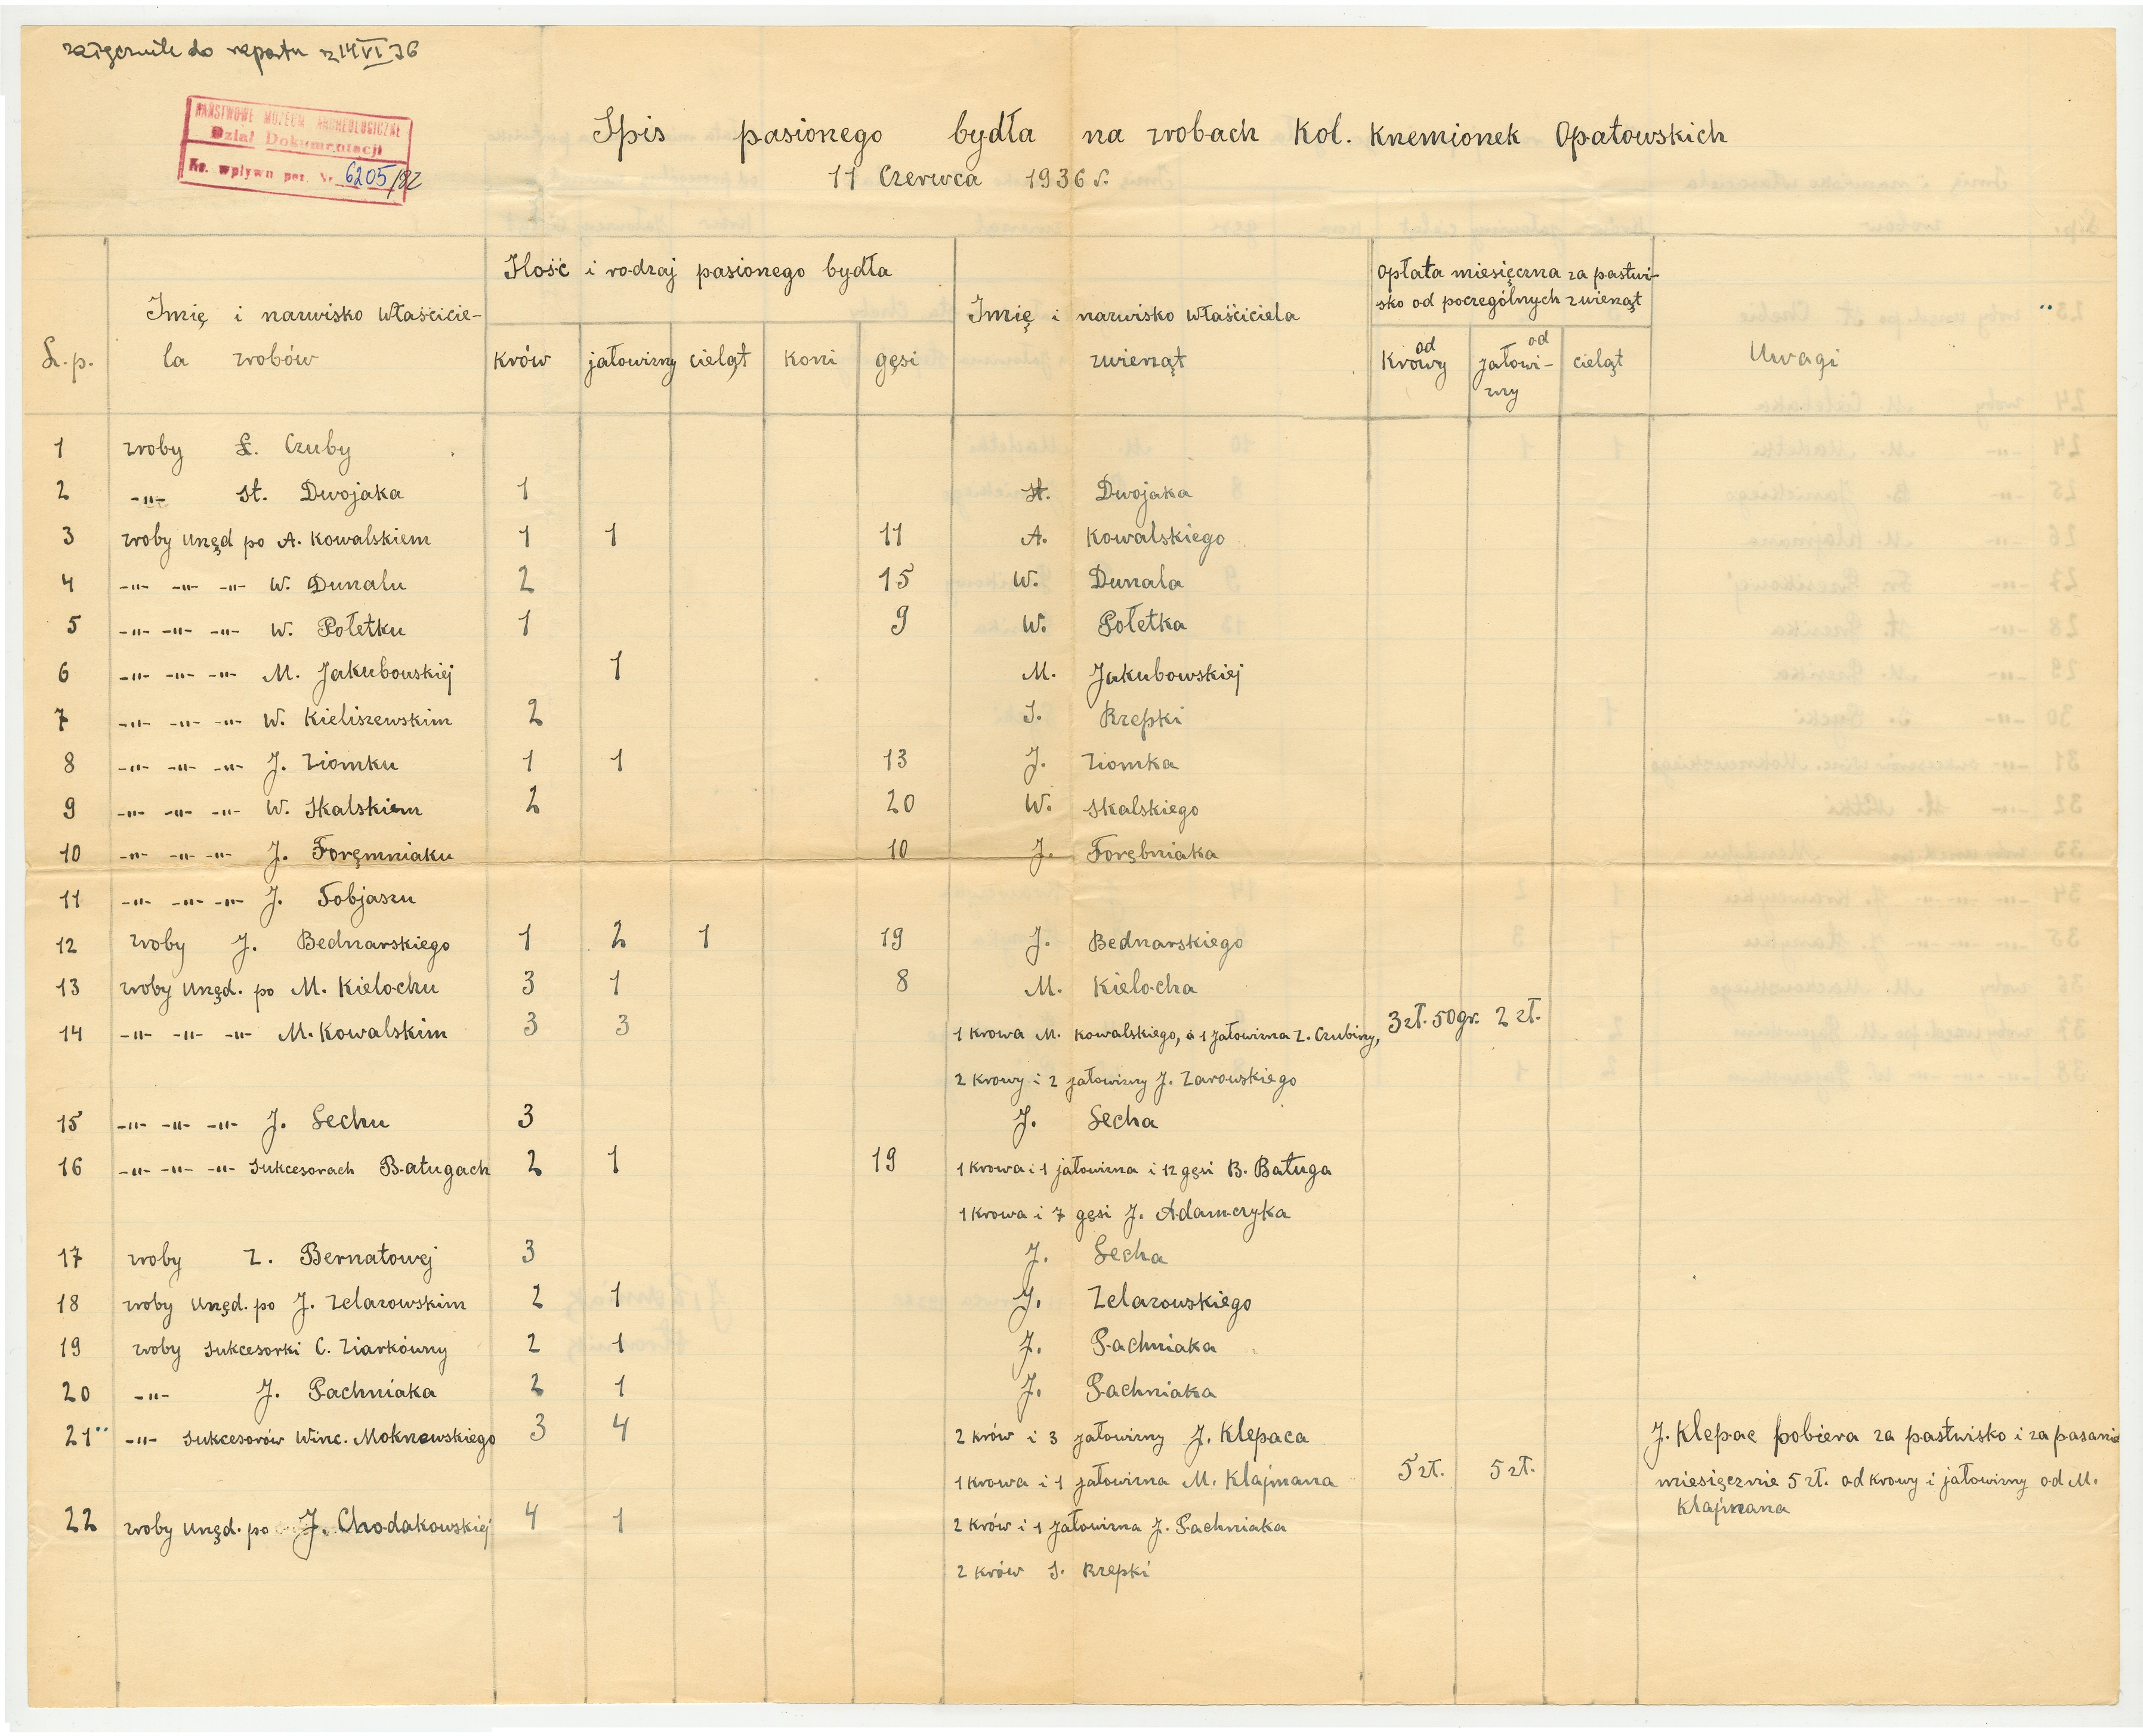 załącznik do raportu z 14 VI 36
PAŃSTWOWE MUZEUM ARCHEOLOGICZNE
Dział Dokumentacji
Ks. wpływu poz. Nr. 6205/82
Spis pasionego bydła na zrobach Kol. Krzemionek Opatowskich
11 Czerwca 1936 r.
L.p. | Imię i nazwisko właściciela zrobów | Ilość i rodzaj pasionego bydła | Imię i nazwisko właściciela zwierząt | Opłata miesięczna za pastwisko od poczególnych zwierząt | Uwagi
krów | jałowizny | cieląt | koni | gęsi | od krowy | od jałowizny | cieląt
1 zroby Ł. Czuby
2 -"- St. Dwojaka 1 St. Dwojaka
3 zroby urzęd po A. Kowalskiem 1 1 11 A. Kowalskiego
4 -"- -"- -"- W. Dunalu 2 15 W. Dunala
5 -"- -"- -"- W. Połetku 1 9 W. Połetka
6 -"- -"- -"- M. Jakubowskiej 1 M. Jakubowskiej
7 -"- -"- -"- W. Kieliszewskim 2 S. Rzepki
8 -"- -"- -"- J. Ziomku 1 1 13 J. Ziomka
9 -"- -"- -"- W. Skalskiem 2 20 W. Skalskiego
10 -"- -"- -"- J. Foręmniaku 10 J. Forębniaka
11 -"- -"- -"- J. Tobjaszu
12 zroby J. Bednarskiego 1 2 1 19 J. Bednarskiego
13 zroby urzęd. po M. Kielochu 3 1 8 M. Kielocha
14 -"- -"- -"- M. Kowalskim 3 3 1 krowa M. Kowalskiego, a 1 jałowizna Z. Czubiny, 3 zł. 50 gr. 2 zł.
2 krowy i 2 jałowizny J. Zarowskiego
15 -"- -"- -"- J. Lechu 3 J. Lecha
16 -"- -"- -"- Sukcesorach Baługach 2 1 19 1 krowa i 1 jałowizna i 12 gęsi B. Baługa
1 krowa i 7 gęsi J. Adamczyka
17 zroby Z. Bernatowej 3 J. Lecha
18 zroby urzęd. po J. Zelazowskim 2 1 J. Zelazowskiego
19 zroby Sukcesorki C. Ziarkówny 2 1 J. Pachniaka
20 -"- J. Pachniaka 2 1 J. Pachniaka
21 -"- Sukcesorów Winc. Mokrzewskiego 3 4 2 krów i 3 jałowizny J. Klepaca J. Klepac pobiera za pastwisko i za pasanie
1 krowa i 1 jałowizna M. Klajmana 5 zł. 5 zł. miesięcznie 5 zł. od krowy i jałowizny od M.
Klajmana
22 zroby urzęd. po J. Chodakowskiej 4 1 2 krów i 1 jałowizna J. Pachniaka
2 krów S. Rzepki